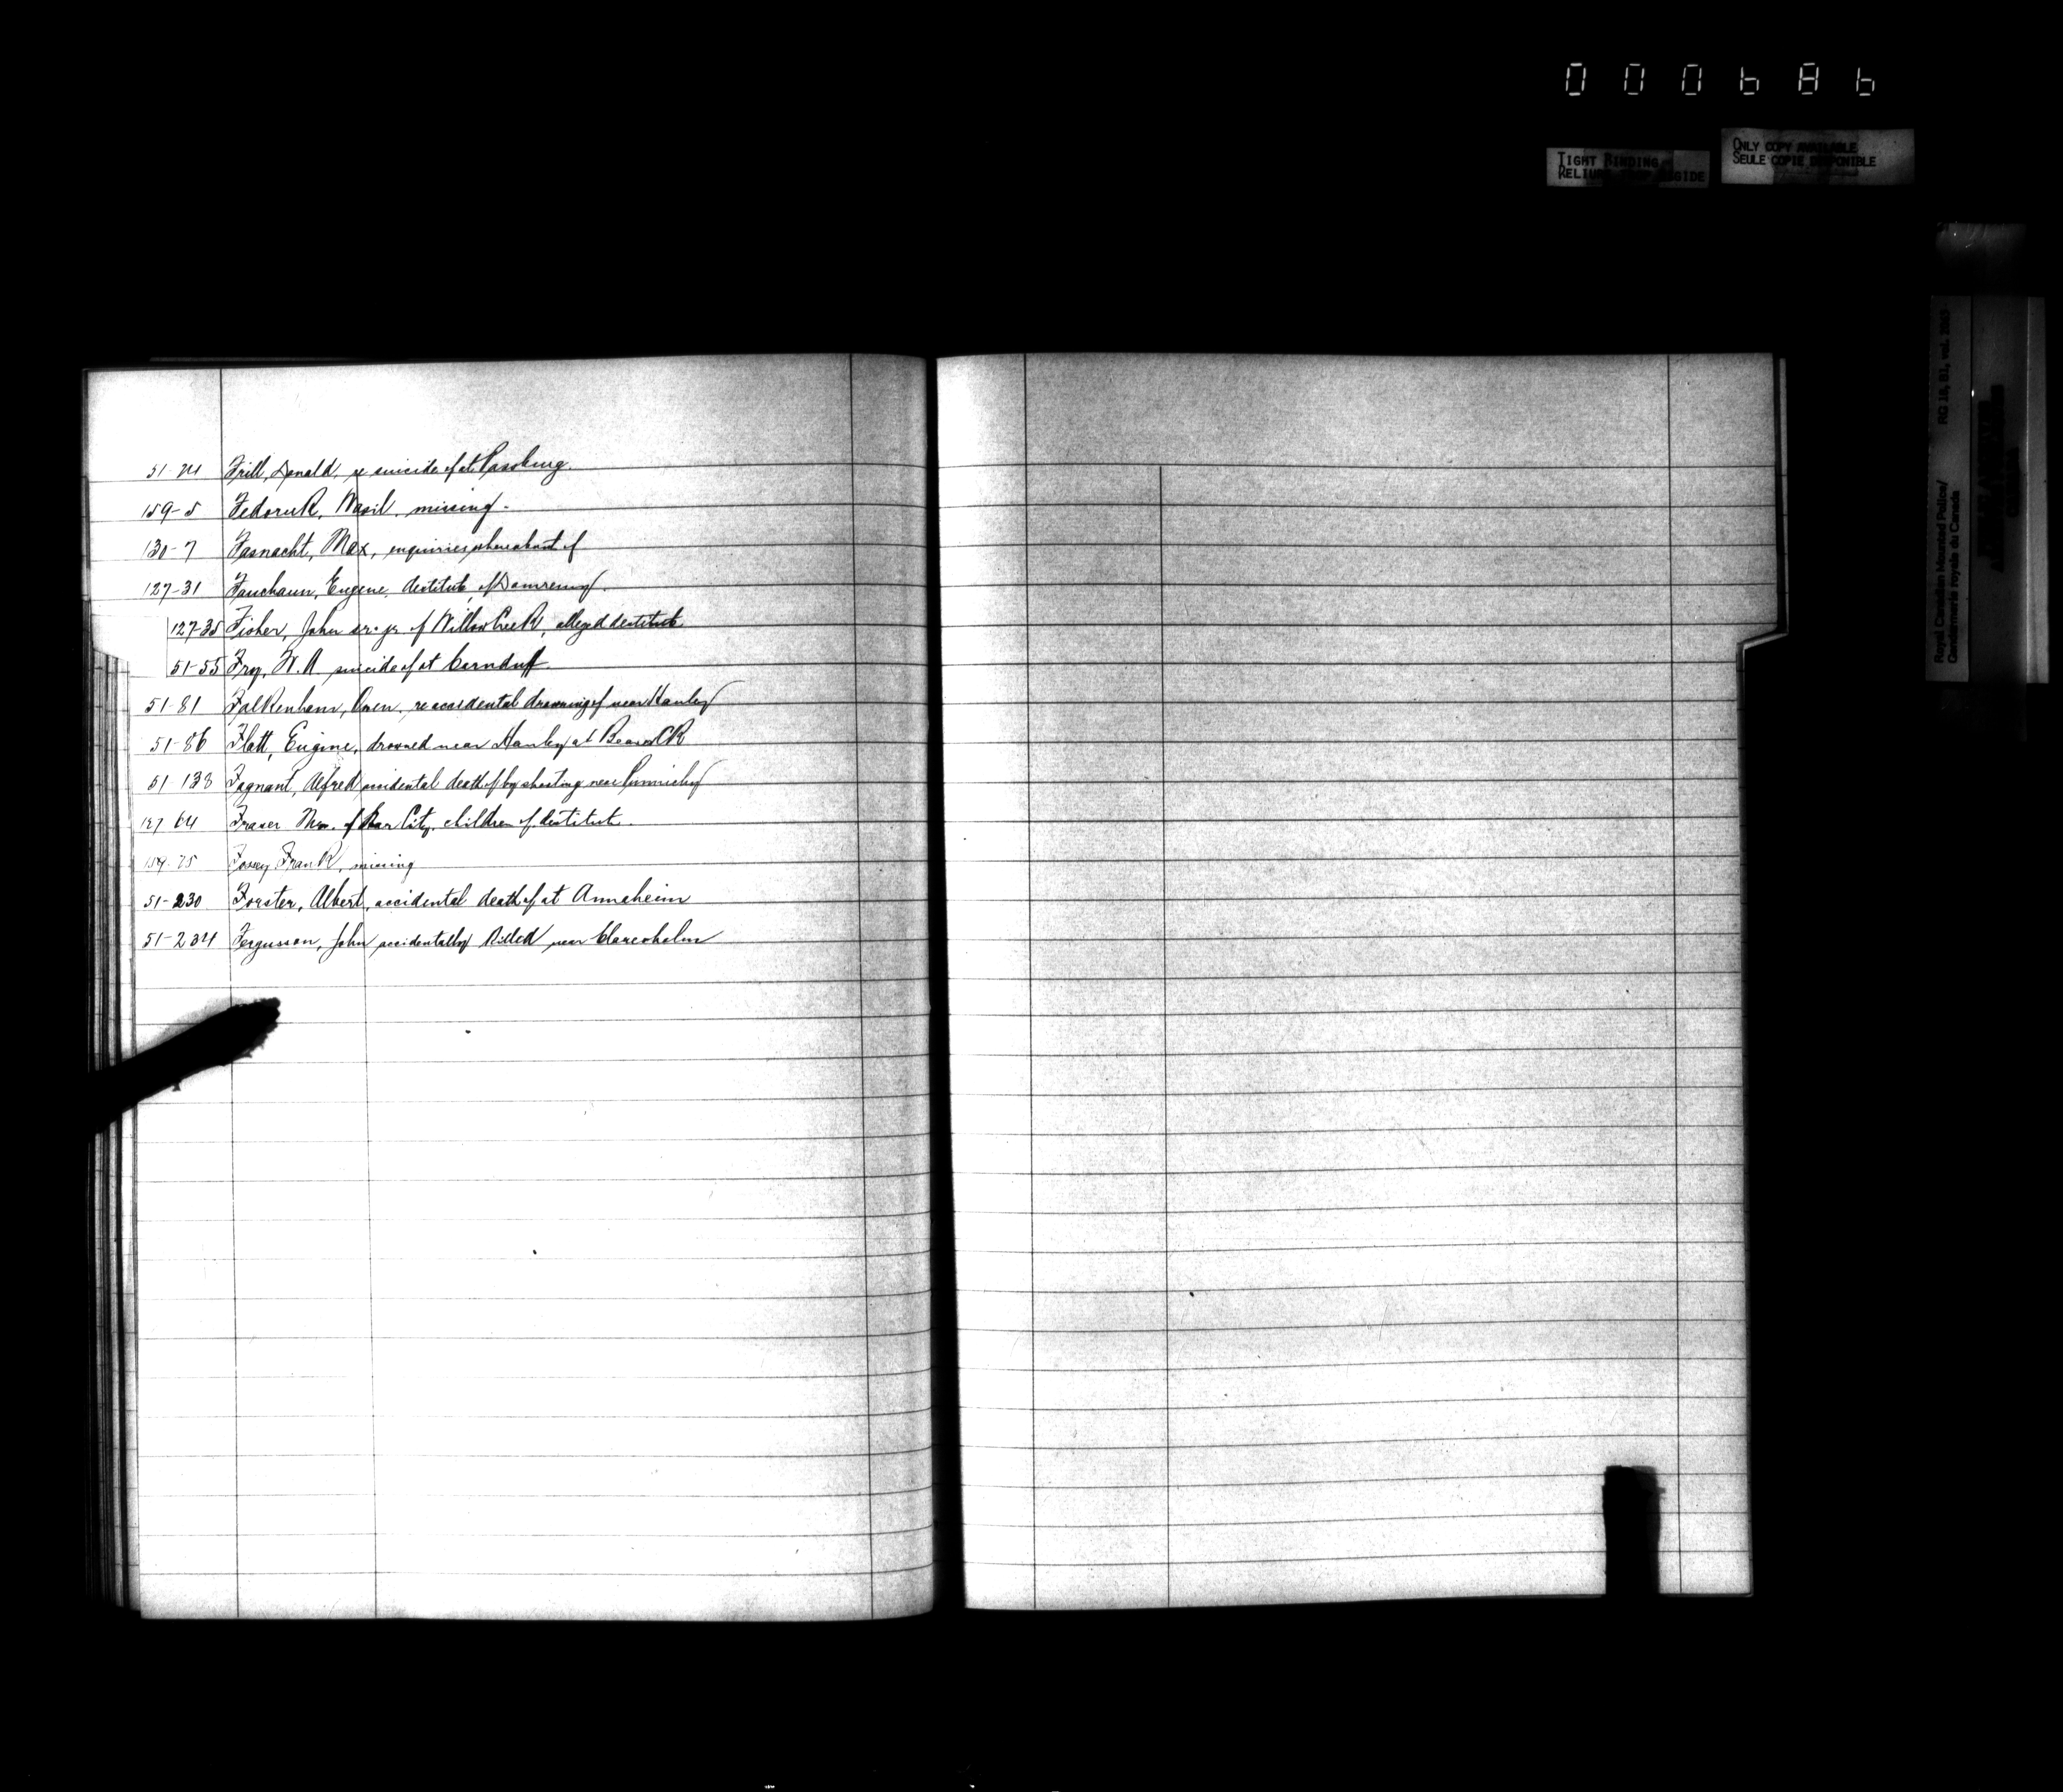 000686
TIGHT BINDING
RELIURE TROP RIGIDE
ONLY COPY AVAILABLE
SEULE COPIE DISPONIBLE
Royal Canadian Mounted Police/ RG 18, B1, vol.
Gendarmerie royale du Canada
51-24 Frill, Donald, re suicide of at
159-5 Fedoruk, Wasil, missing.
130-7 Fasnacht, Max, enquiries whereabout of
127-31 Eugene, destitute, of
127-35 Fisher, John sr. jr. of Willow Creek, alleged destitute
51-55 Fry, W.A. suicide of at Carnduff
51-81 Falkenham, Owen, re accidental drowning of near Hanley
51-86 Flatt, Eugine, drowned near Hanley at Beaver CK
51-138 Fagnant, Alfred accidental death of by shooting near Punnichy
127 64 Fraser Mrs. of Star City, children of destitute.
Frank, missing
51-230 Forster, Albert, accidental death of at Annaheim
51-234 Fergusson, John accidentally killed near Claresholm